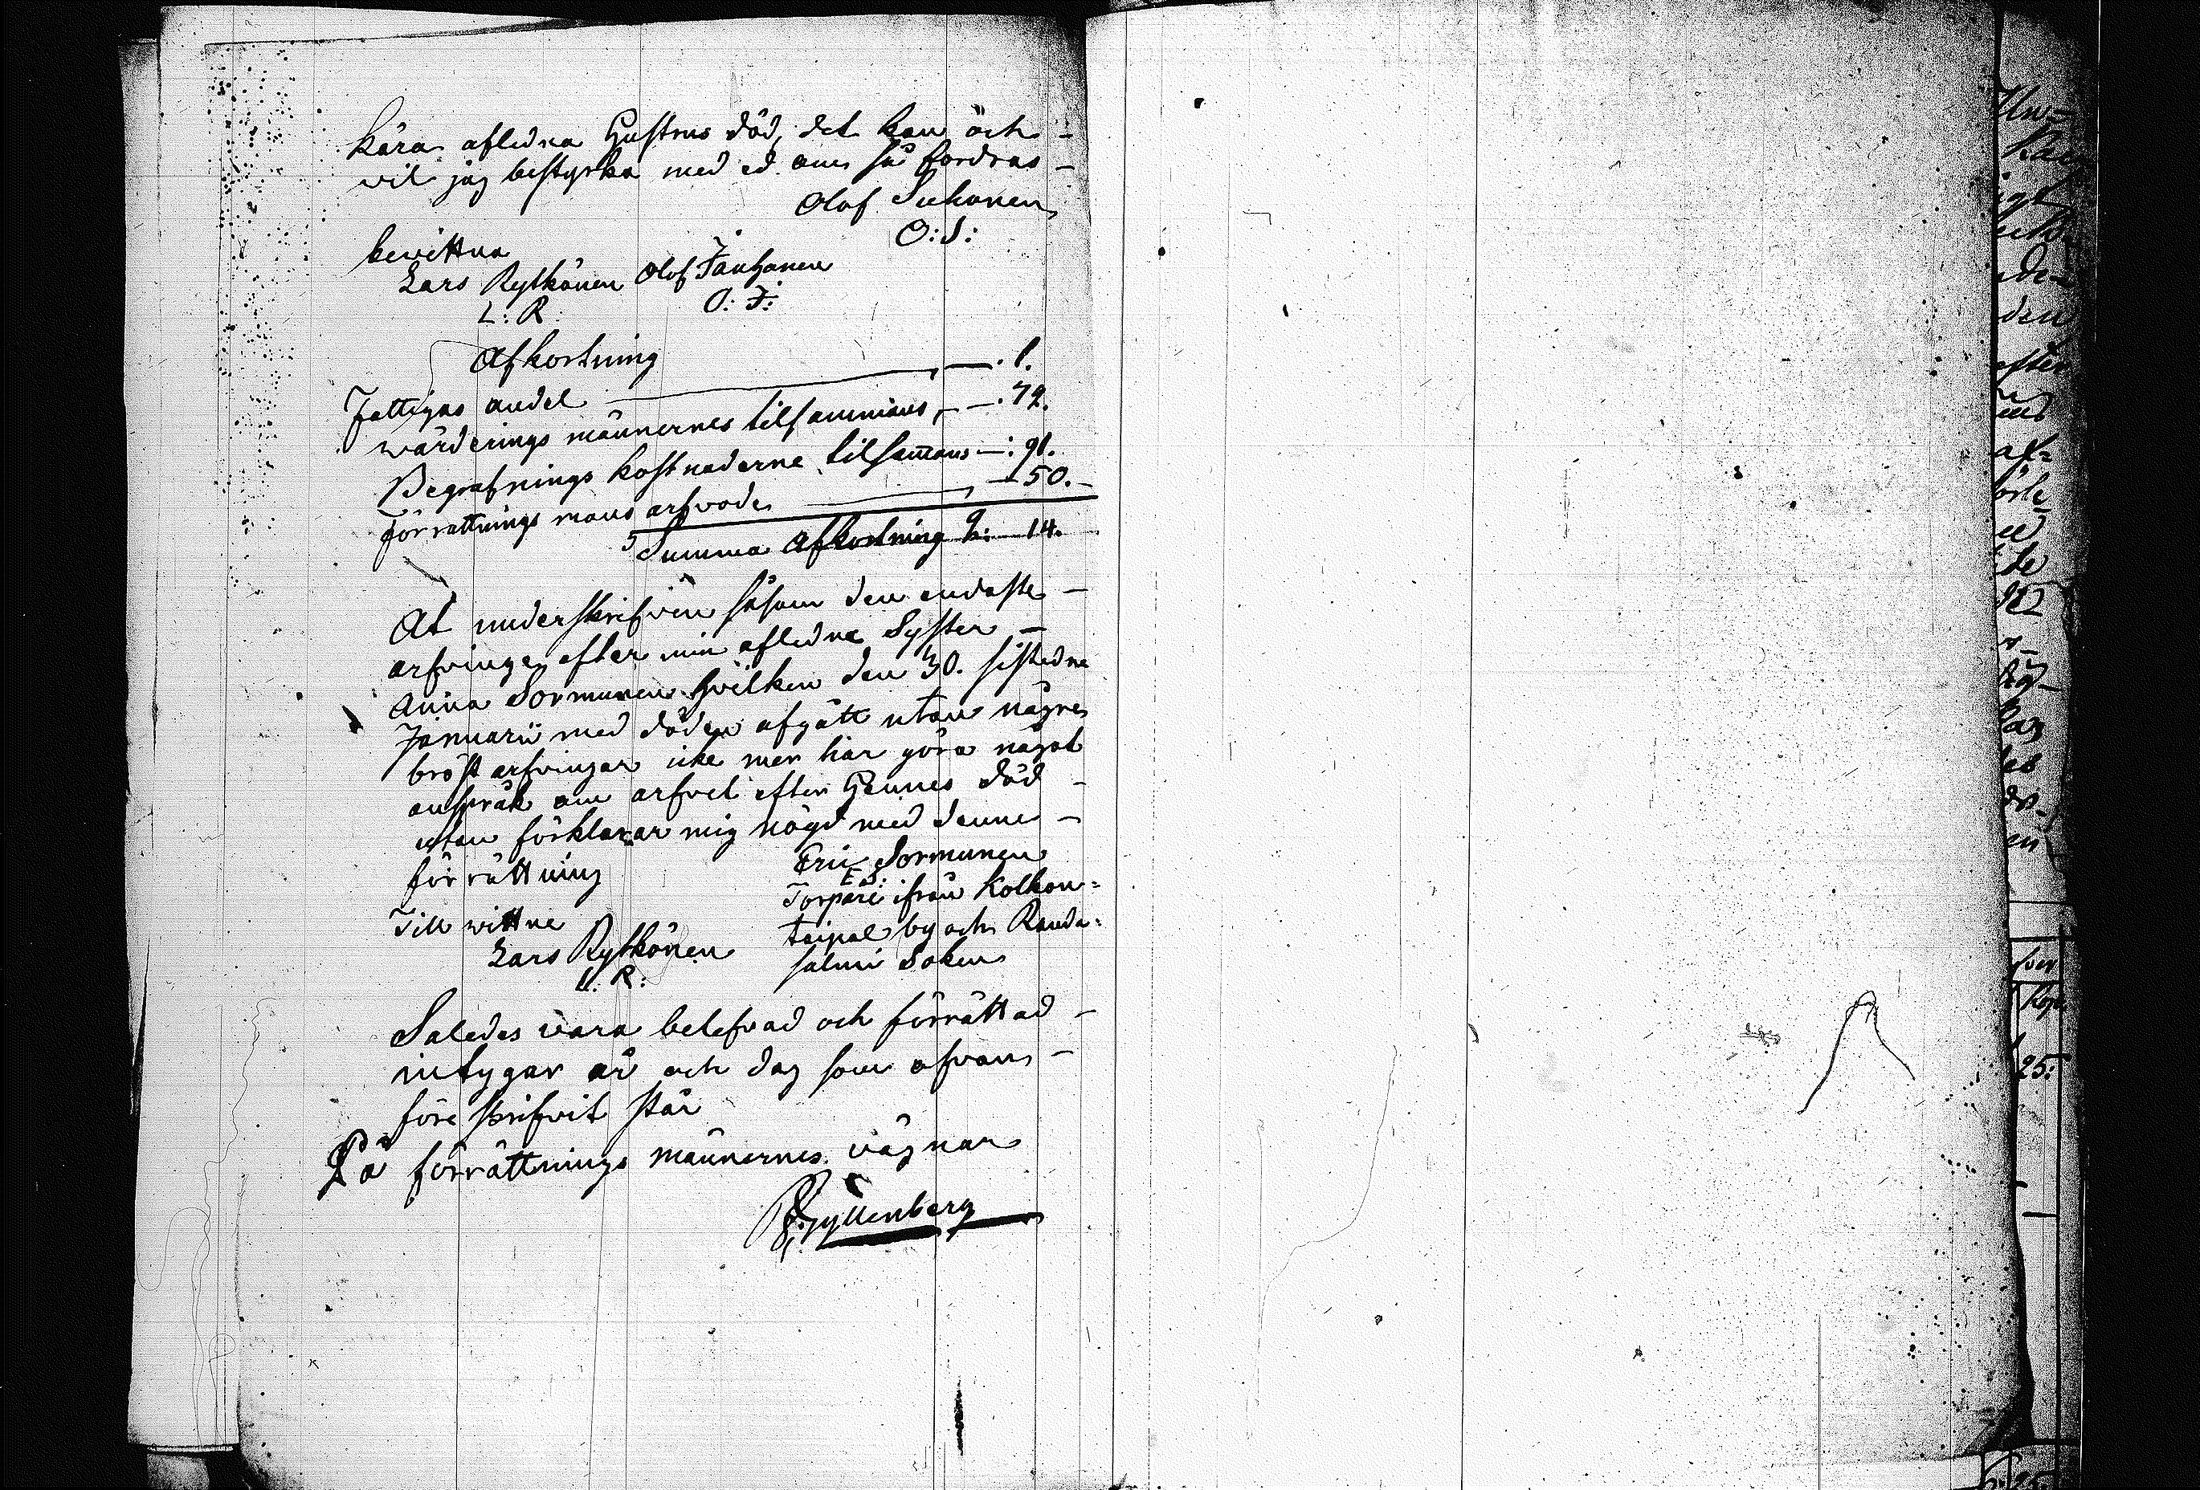 kära aflidna Hustrus död, det kan och –
vil jag bestyrka med ed om så fordras –
Olof Suhonen
O: S:
bevittna
Lars Rytkönen Olof Jauhanen
L: R. O: J:
Afkortning
Fattigas andel — . 1.
wärderings männernes tilsammans, — . 72.
Begrafnings kostnaderne tilsammans — : 91.
förrättnings mans arfvode — 50. –
Summa Afkortning 2: — 14.
At underskrifven såsom den endaste –
arfvinge efter min aflidne Syster –
Anna Sormunen hvilken den 30. sistledne
Januarii med döden afgått utan någre
bröst arfvingar icke mer här göra något
anspråk om arfvet efter Hennes död –
utan förklarar mig nögd med denne –
förrättning Eric Sormunen
E S:
Torpare ifrån Kolkon=
Till wittne taipal by och Randa=
Lars Rytkönen salmi Soken
L: R:
Saledes vara belefvad och förrättad –
intygar år och dag som ofvan –
före skrifvit står
På förrättnings männernes vägnar
Gyllenberg
Kop
25: